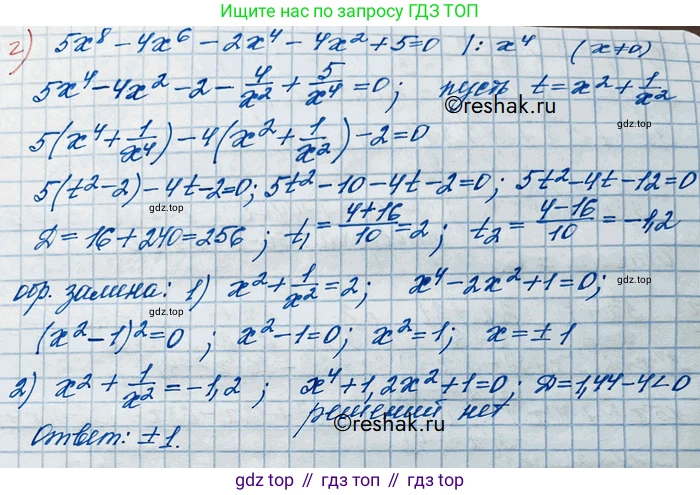 Ищите нас по запросу ГДЗ ТОП
г) 5x⁸ - 4x⁶ - 2x⁴ - 4x² + 5 = 0 |: x⁴ (x≠0)
5x⁴ - 4x² - 2 - 4/x² + 5/x⁴ = 0; пусть t = x² + 1/x²
©reshak.ru
gdz.top
5(x⁴ + 1/x⁴) - 4(x² + 1/x²) - 2 = 0
gdz.top
5(t² - 2) - 4t - 2 = 0; 5t² - 10 - 4t - 2 = 0; 5t² - 4t - 12 = 0
gdz.top
Д = 16 + 240 = 256; t₁ = (4+16)/10 = 2; t₂ = (4-16)/10 = -1,2
обр. замена: 1) x² + 1/x² = 2; x⁴ - 2x² + 1 = 0;
gdz.top
(x² - 1)² = 0; x² - 1 = 0; x² = 1; x = ± 1
gdz.top
2) x² + 1/x² = -1,2; x⁴ + 1,2x² + 1 = 0; Д = 1,44 - 4 < 0
решений нет
Ответ: ± 1.
©reshak.ru
gdz.top
gdz.top // gdz.top // gdz.top